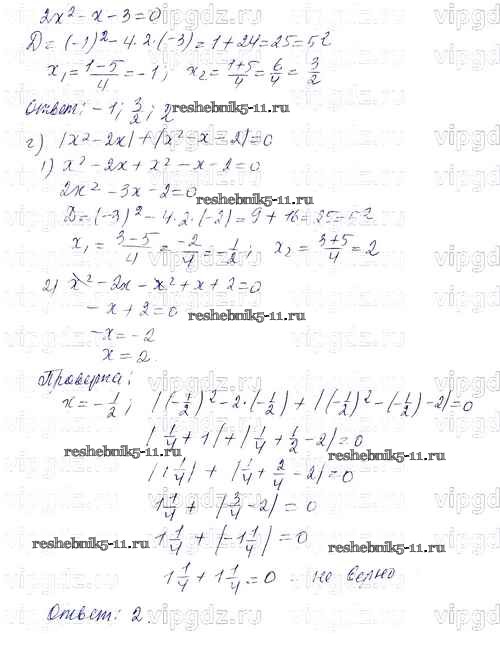 2x² - x - 3 = 0
D = (-1)² - 4·2·(-3) = 1 + 24 = 25 = 5²
x₁ = (1-5)/4 = -1; x₂ = (1+5)/4 = 6/4 = 3/2
Ответ: -1; 3/2; 2
reshebnik5-11.ru
г) |x² - 2x| + |x² - x - 2| = 0
1) x² - 2x + x² - x - 2 = 0
2x² - 3x - 2 = 0
reshebnik5-11.ru
D = (-3)² - 4·2·(-2) = 9 + 16 = 25 = 5²
x₁ = (3-5)/4 = -2/4 = -1/2; x₂ = (3+5)/4 = 2
2) x² - 2x - x² + x + 2 = 0
- x + 2 = 0
reshebnik5-11.ru
-x = -2
x = 2.
Проверка:
x = -1/2; |(-1/2)² - 2·(-1/2)| + |(-1/2)² - (-1/2) - 2| = 0
|1/4 + 1| + |1/4 + 1/2 - 2| = 0
reshebnik5-11.ru reshebnik5-11.ru
|1 1/4| + |1/4 + 2/4 - 2| = 0
1 1/4 + |3/4 - 2| = 0
1 1/4 + |-1 1/4| = 0
reshebnik5-11.ru reshebnik5-11.ru
1 1/4 + 1 1/4 = 0 - не верно
Ответ: 2.
vipgdz.ru